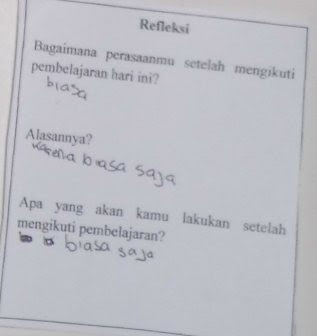 Refleksi
Bagaimana perasaanmu setelah mengikuti
pembelajaran hari ini?
biasa
Alasannya?
karena biasa saja
Apa yang akan kamu lakukan setelah
mengikuti pembelajaran?
biasa saja